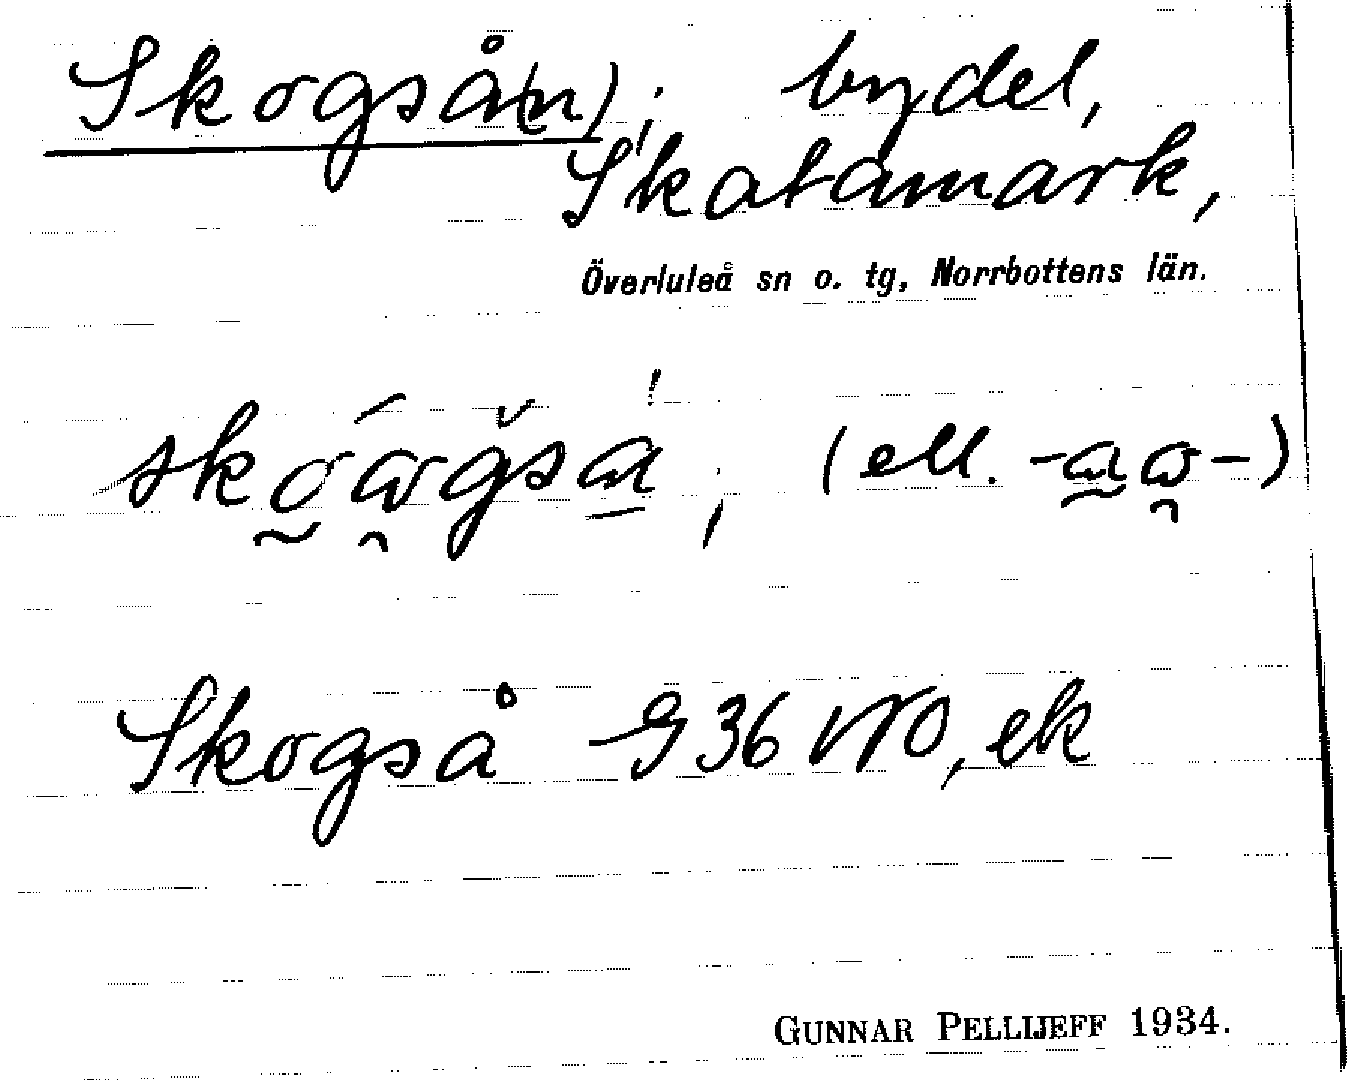 Skogsån(n); bydel,
Skatamark,
Överluleå sn o. tg, Norrbottens län.
(ell.
Skogså G 36 NO, ek
GUNNAR PELLIJEFF 1934.